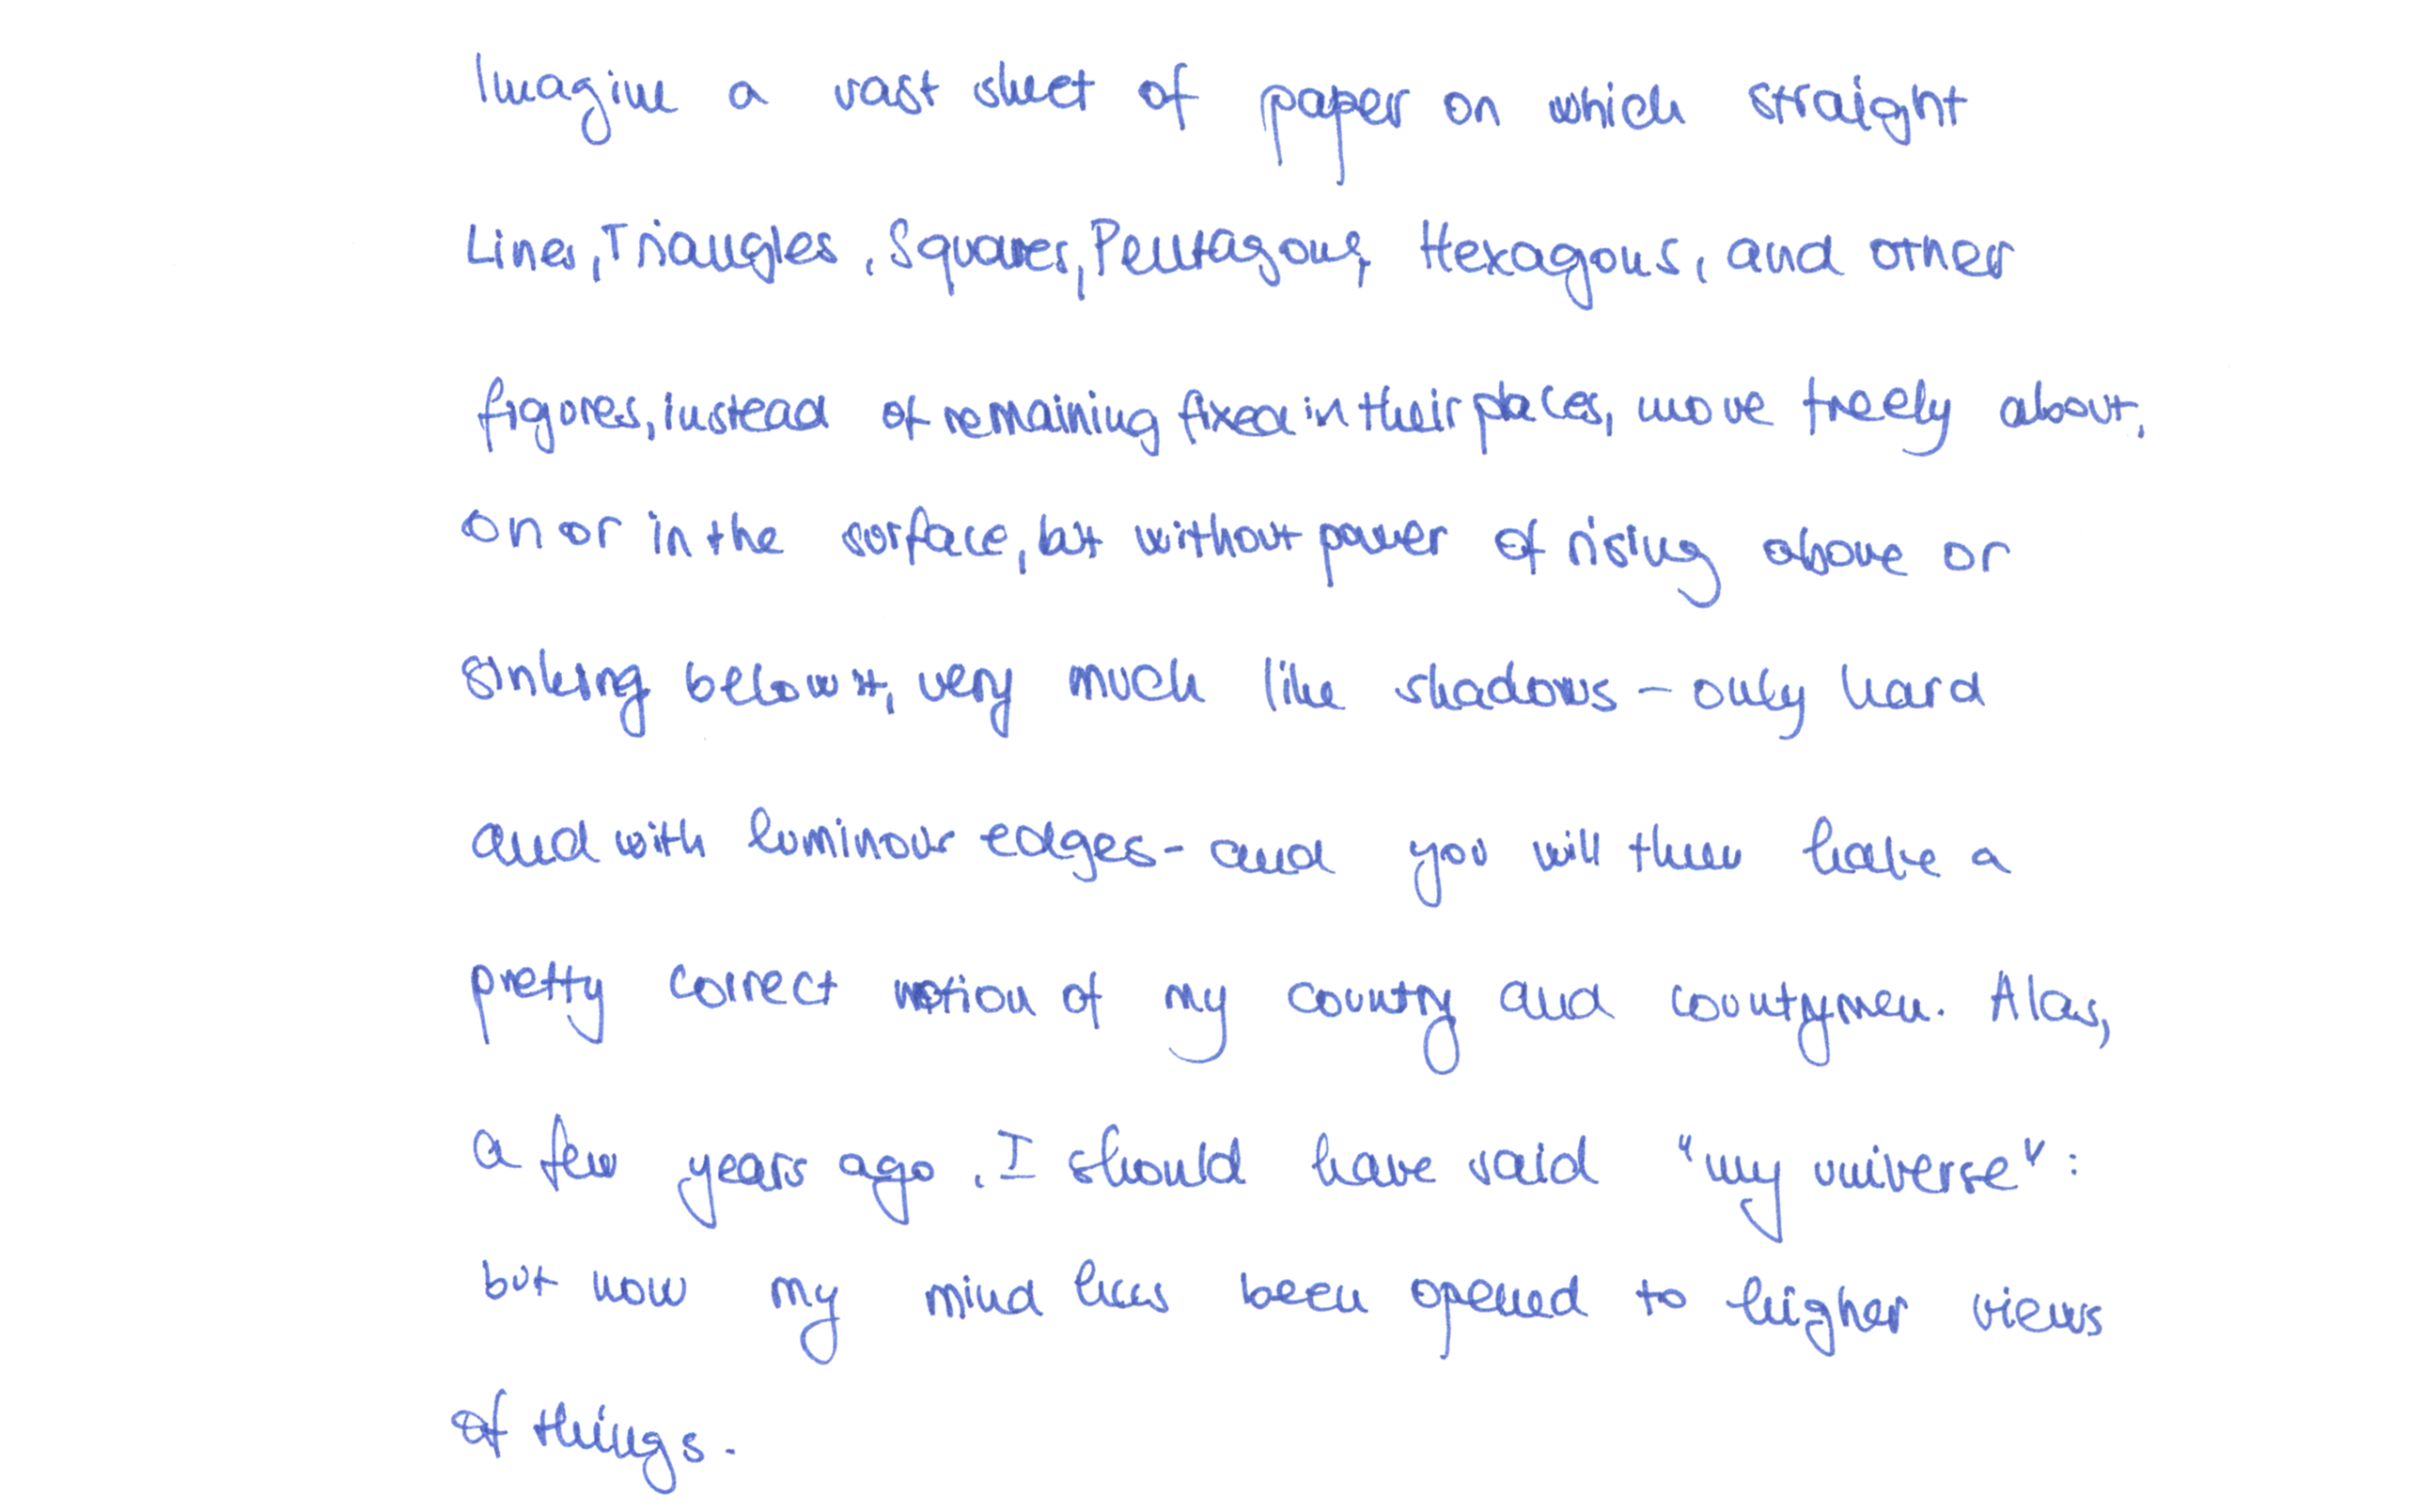 Imagine a vast sheet of paper on which straight
Lines, Triangles, Squares, Pentagons, Hexagons, and other
figures, instead of remaining fixed in their places, move freely about,
on or in the surface, but without power of rising above or
sinking below it, very much like shadows - only hard
and with luminous edges - and you will then have a
pretty correct notion of my country and countymen. Alas,
a few years ago, I should have said "my universe":
but now my mind has been opened to higher views
of things.